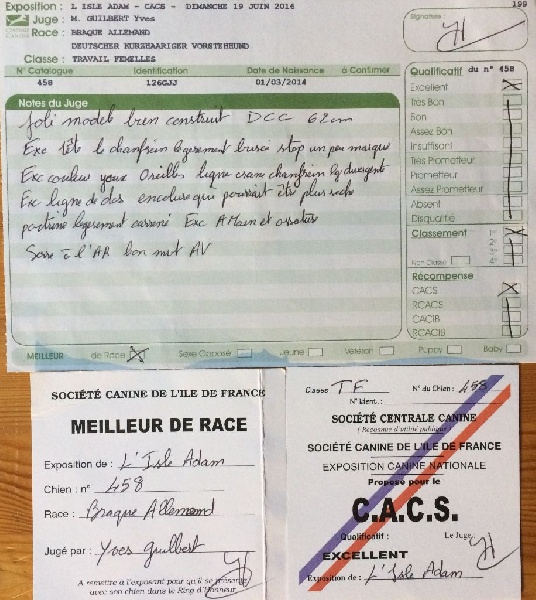 Exposition : L ISLE ADAM - CACS - DIMANCHE 19 JUIN 2016
199
Juge : M. GUILBERT Yves
Signature :
Race : BRAQUE ALLEMAND
DEUTSCHER KURZHAARIGER VORSTEHHUND
Classe : TRAVAIL FEMELLES
N° Catalogue Identification Date de Naissance à Confirmer
458 126GJJ 01/03/2014
Qualificatif du n° 458
Excellent
Très Bon
Bon
Assez Bon
Insuffisant
Très Prometteur
Prometteur
Assez Prometteur
Absent
Disqualifié
Classement 1° 2° 3° 4°
Non Classé
Récompense
CACS
RCACS
CACIB
RCACIB
Notes du Juge
Joli model bien construit DCC 62cm
Exc Tête le chanfrein légèrement busqué stop un peu marqué
Exc couleur yeux Oreilles ligne crane chanfrein lg divergente
Exc ligne de dos encolure qui pourrait être plus seche
poitrine légèrement carrené Exc A Main et ossature
Serre à l'AR bon mvt AV
MEILLEUR de Race Sexe Opposé Jeune Vétéran Puppy Baby
SOCIÉTÉ CANINE DE L'ILE DE FRANCE
MEILLEUR DE RACE
Exposition de : L'Isle Adam
Chien : n° 458
Race : Braque Allemand
Jugé par : Yves Guilbert
A remettre à l'exposant pour qu'il se présente
avec son chien dans le Ring d'Honneur
Classe TF N° du Chien : 458
N° Ident. :
SOCIÉTÉ CENTRALE CANINE
(Reconnue d'utilité publique)
SOCIÉTÉ CANINE DE L'ILE DE FRANCE
EXPOSITION CANINE NATIONALE
Proposé pour le
C.A.C.S.
Qualificatif : Le Juge,
EXCELLENT
Exposition de : L'Isle Adam